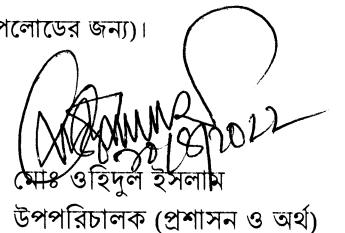 পলোডের জন্য)।
মোঃ ওহিদুল ইসলাম
উপপরিচালক (প্রশাসন ও অর্থ)